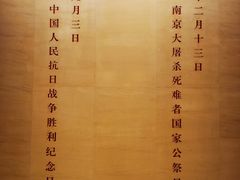 二月十三日
南京大屠杀死难者国家公祭
月三日
中国人民抗日战争胜利纪念